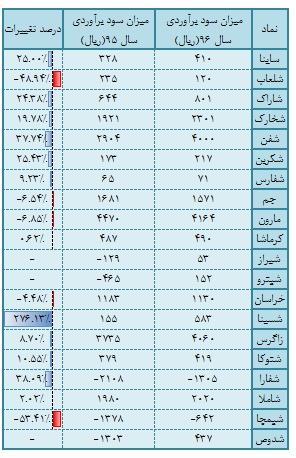 نماد میزان سود برآوردی سال ۹۶(ریال) میزان سود برآوردی سال ۹۵(ریال) درصد تغییرات
ساینا ۴۱۰ ۳۲۸ ۲۵.۰۰%
شلعاب ۱۲۰ ۲۳۵ -۴۸.۹۴%
شاراک ۸۰۱ ۶۴۴ ۲۴.۳۸%
شخارک ۲۳۰۱ ۱۹۲۱ ۱۹.۷۸%
شفن ۴۰۰۰ ۲۹۰۴ ۳۷.۷۴%
شکربن ۲۱۷ ۱۷۳ ۲۵.۴۳%
شفارس ۷۱ ۶۵ ۹.۲۳%
جم ۱۵۷۱ ۱۶۸۱ -۶.۵۴%
مارون ۴۱۶۴ ۴۴۷۰ -۶.۸۵%
کرماشا ۴۹۰ ۴۸۷ ۰.۶۲%
شیراز ۵۳ -۱۲۹ -
شپترو ۱۵۲ -۴۶۵ -
خراسان ۱۱۳۰ ۱۱۸۳ -۴.۴۸%
شسینا ۵۸۳ ۱۵۵ ۲۷۶.۱۳%
زاگرس ۴۰۶۰ ۳۷۳۵ ۸.۷۰%
شتوکا ۴۱۹ ۳۷۹ ۱۰.۵۵%
شفارا -۱۳۰۵ -۲۱۰۸ ۳۸.۰۹%
شاملا ۲۰۲۰ ۱۹۸۰ ۲.۰۲%
شیمچا -۶۴۲ -۱۳۷۸ -۵۳.۴۱%
شدوص ۴۳۷ -۱۳۰۳ -